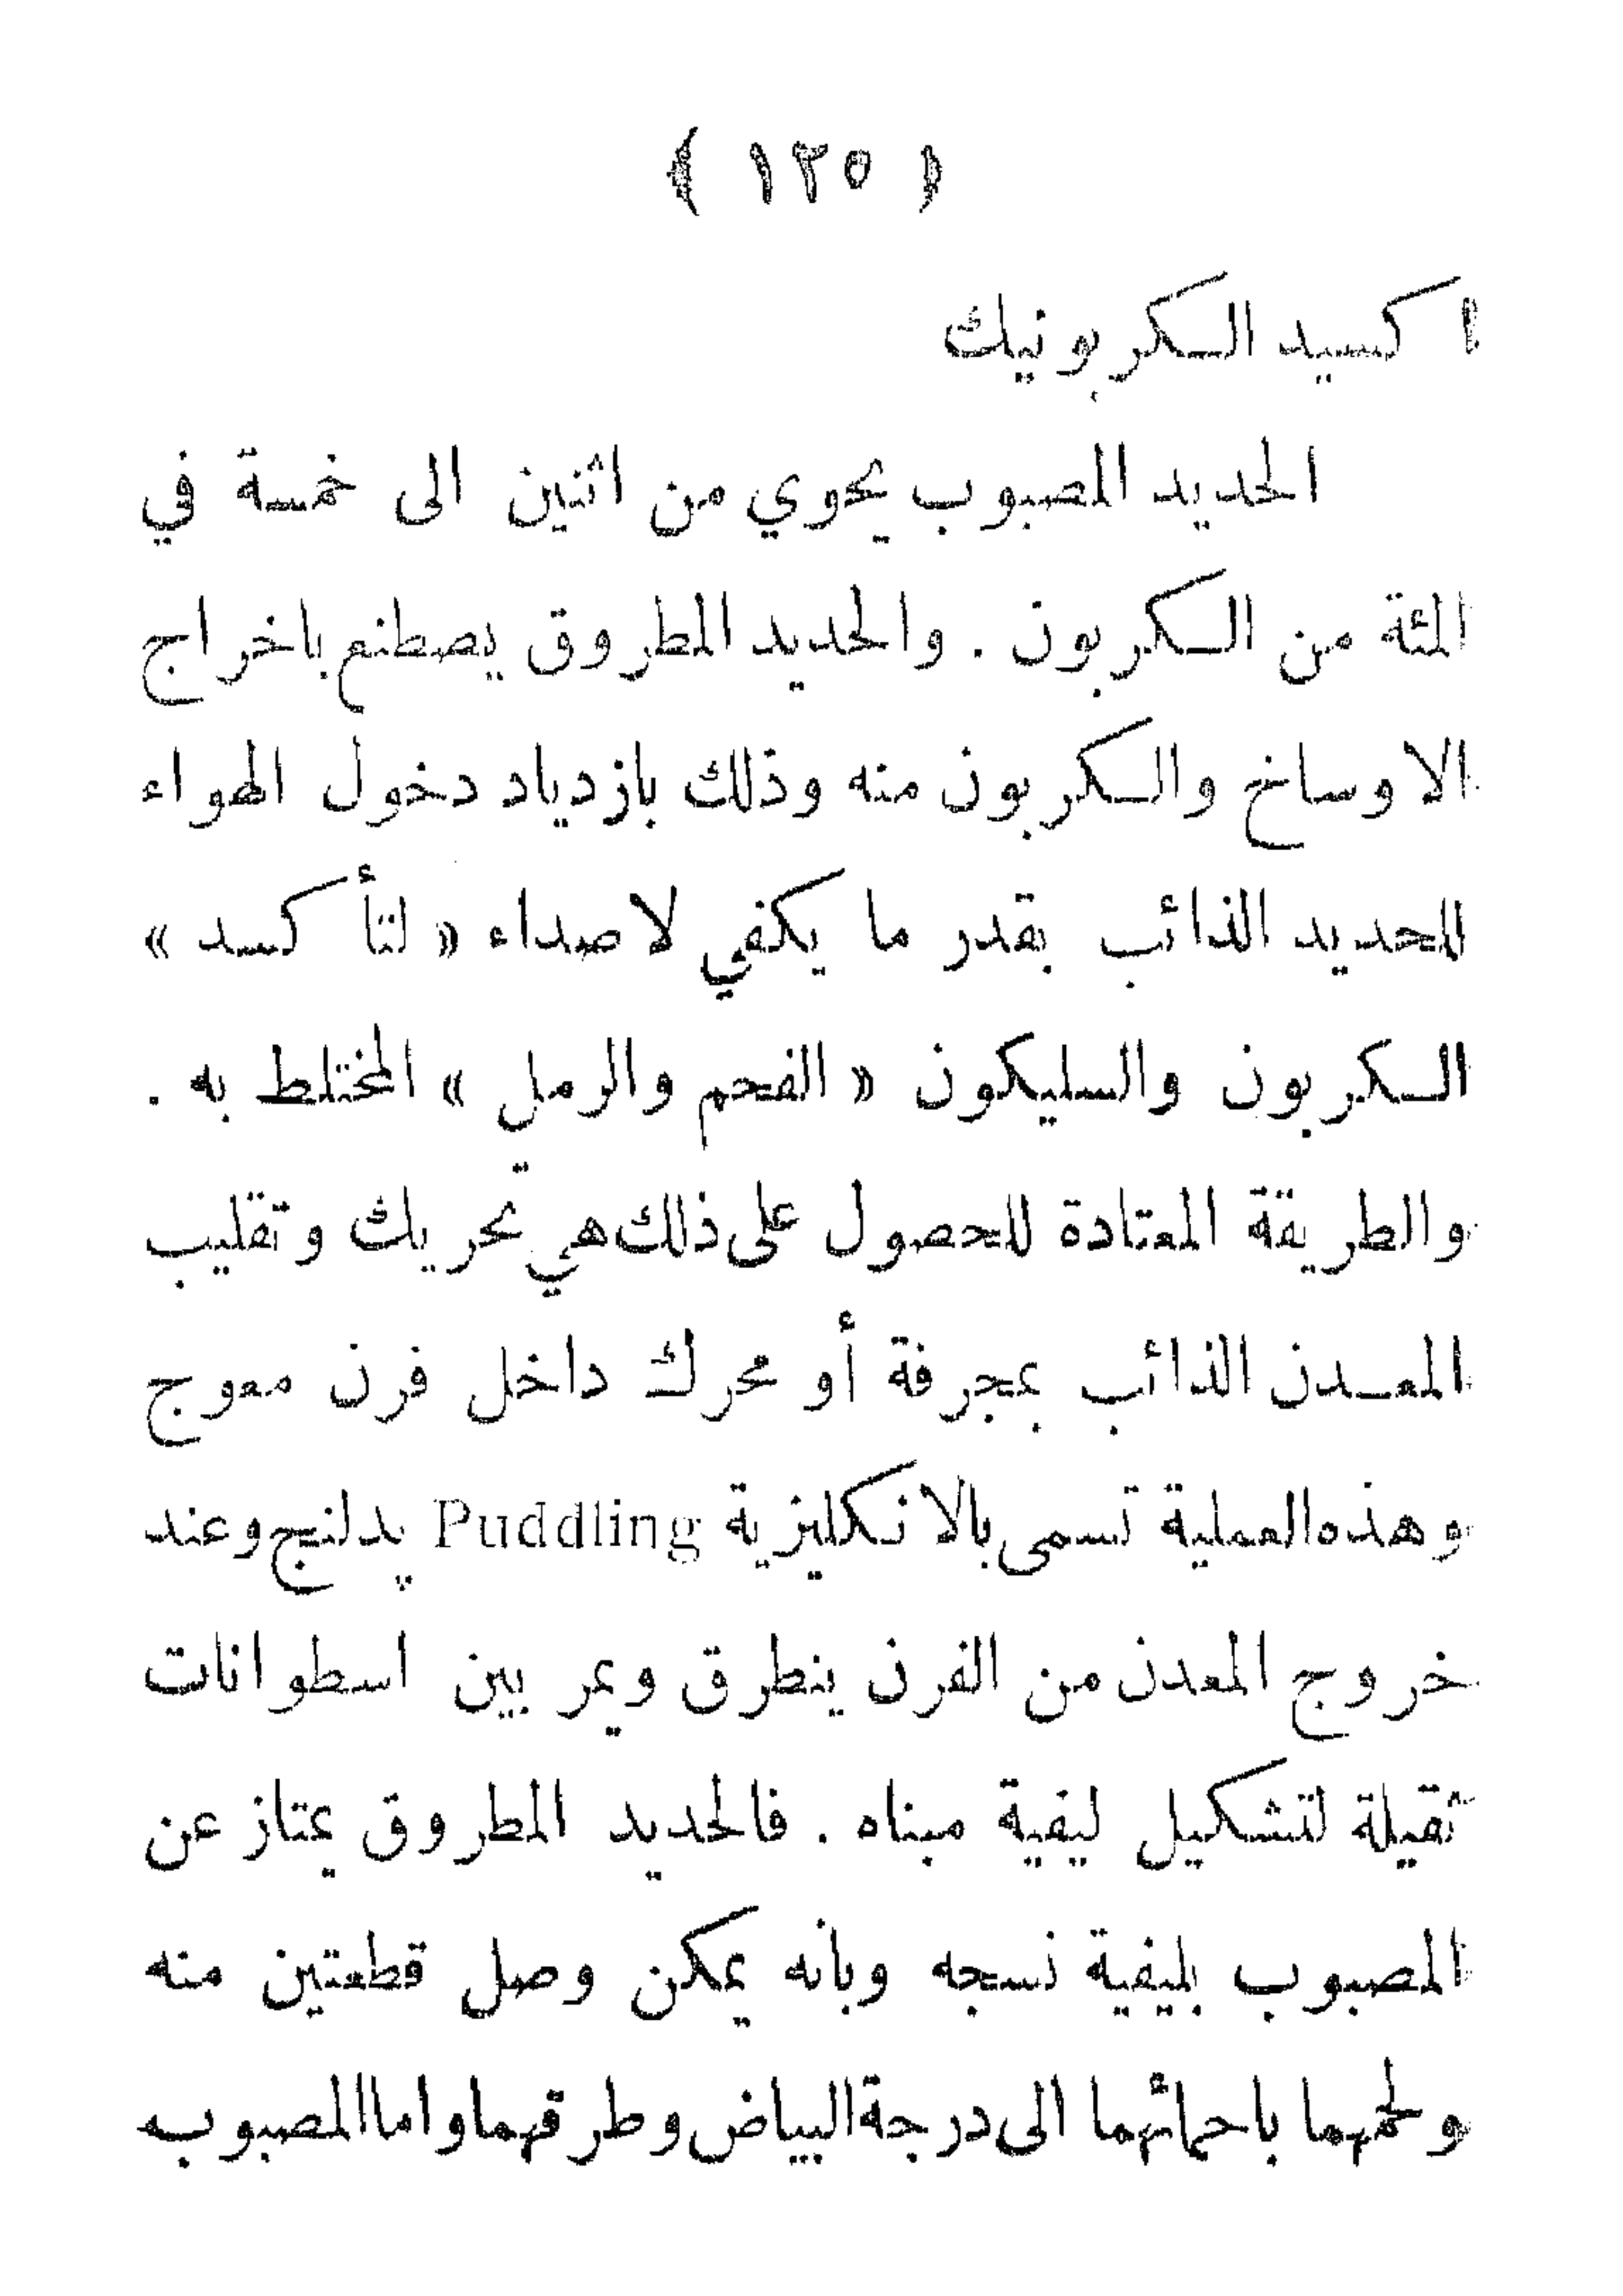 ( ١٢٥ )
اكسيد الكربونيك
الحديد المصبوب يحوي من اثنين الى خمسة في
المئة من الكربون . والحديد المطروق يصطنع باخراج
الاوساخ والكربون منه وذلك بازدياد دخول الهواء
للحديد الذائب بقدر ما يكفي لاصداء « لتأكسد »
الكربون والسليكون « الفحم والرمل » المختلط به .
والطريقة المعتادة للحصول على ذلك هي تحريك وتقليب
المعدن الذائب بمجرفة أو محرك داخل فرن معوج
وهذه العملية تسمى بالانكليزية Puddling پدلنج وعند
خروج المعدن من الفرن ينطرق ويمر بين اسطوانات
ثقيلة لتشكيل ليفية مبناه . فالحديد المطروق يمتاز عن
المصبوب بليفية نسجه وبأنه يمكن وصل قطعتين منه
ولحمهما باحمائهما الى درجة البياض وطرقهما واما المصبوب